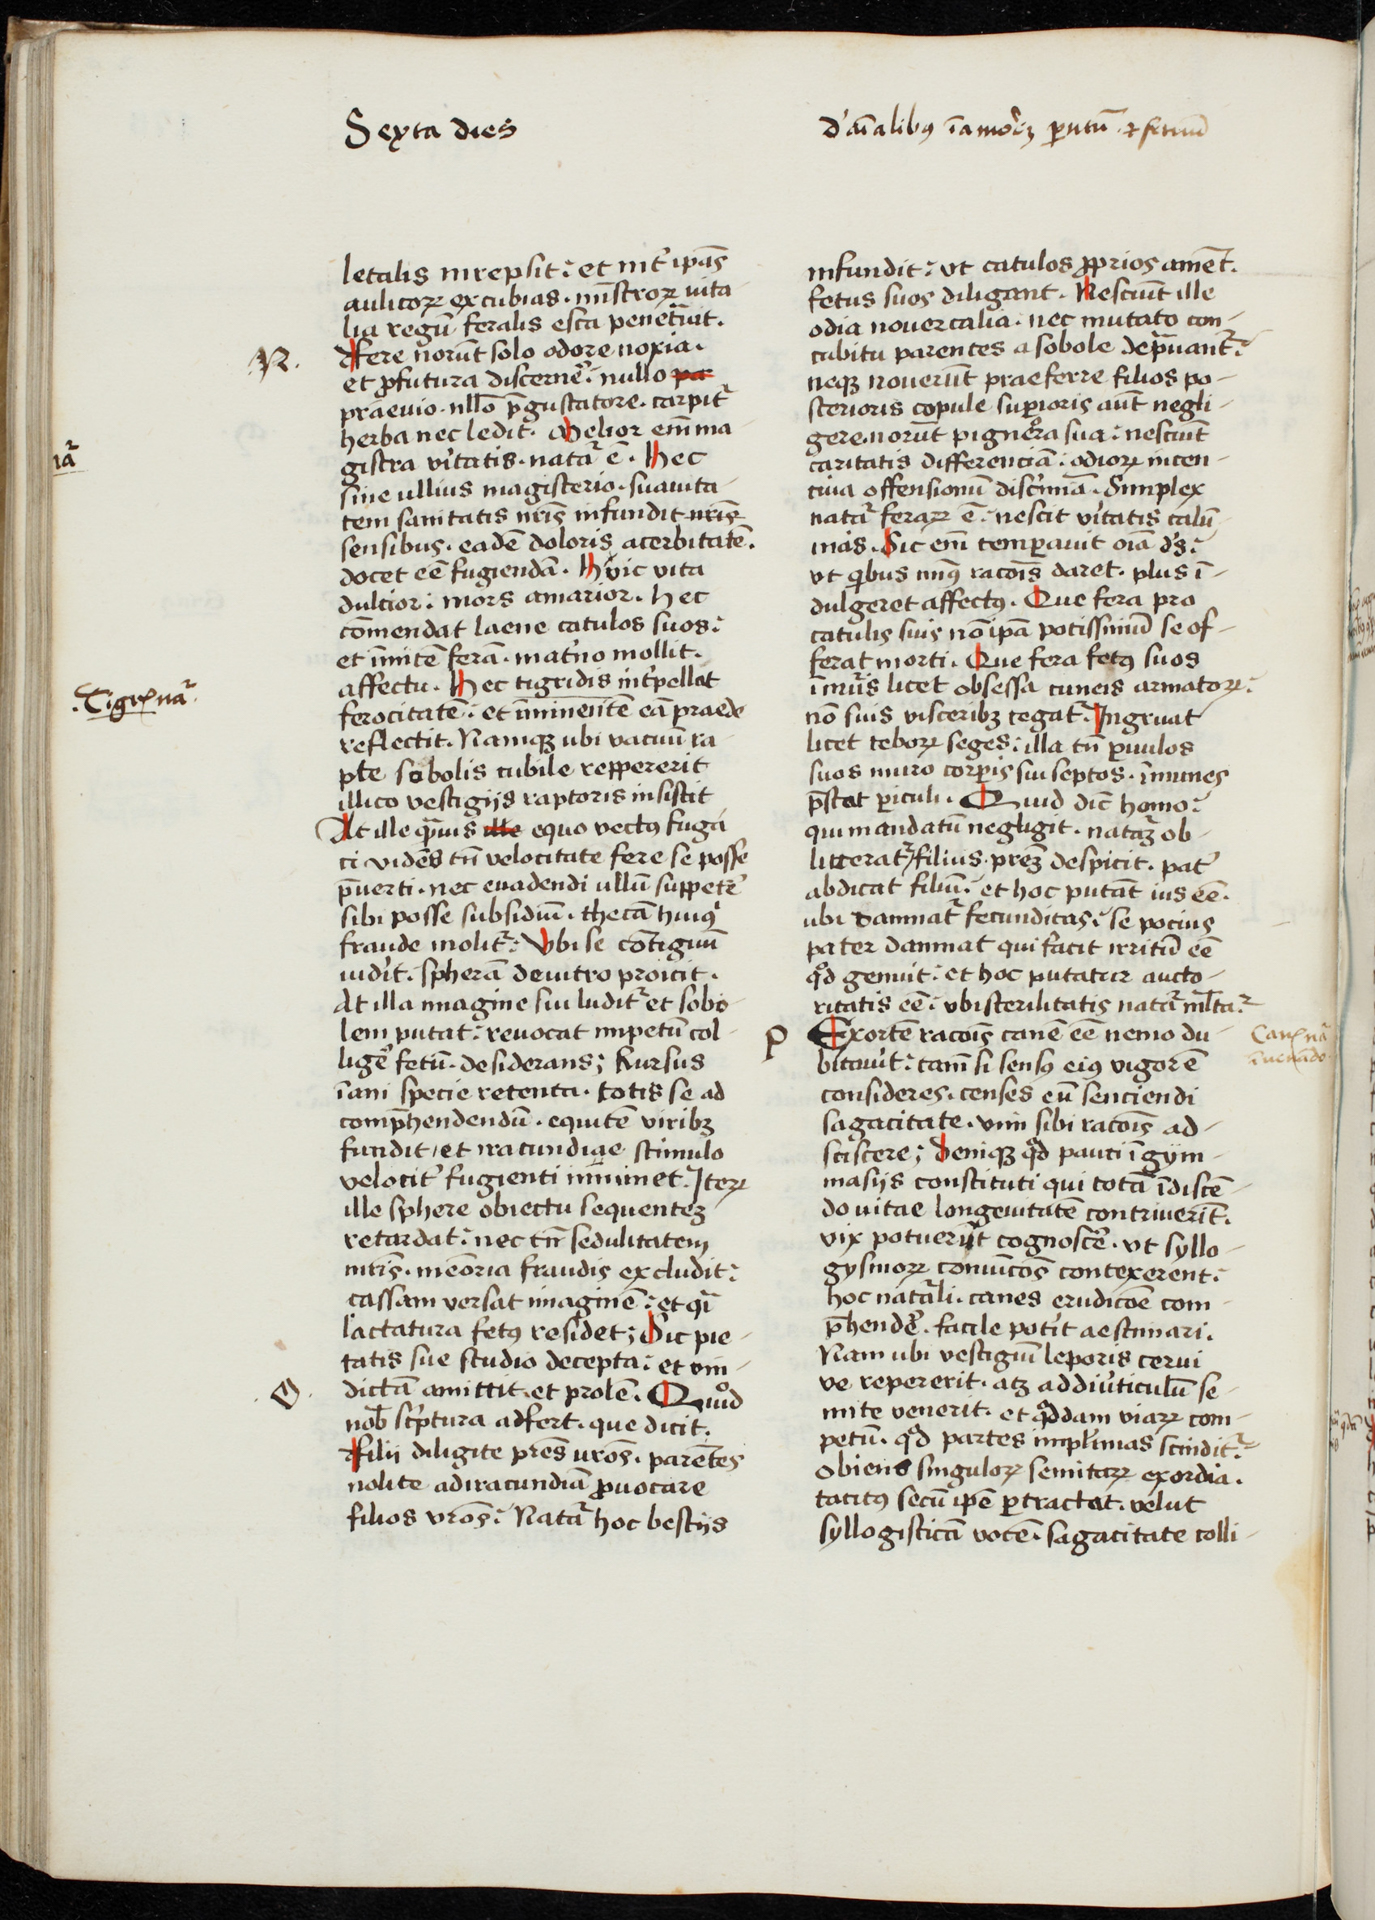 Sexta dies
d' aı̄alibꝰ ı̄amoꝵ ꝑutū ⁊ fetuū
letalis irrepsit: et int' ıpās
aulicoꝝ excubias. mı̄stroꝝ uita-
lia regū feralis esca penet̄uit.
N.
ffere norūt solo odore noxia.
et ꝓfutura discerne᷒: nullo pa
praeuio. nllō p̄gustatore. carpit᷒
herba nec ledit᷒. Melior em̄ ma
gistra v'itatis. nat᷒a ē. Hec
ıā᷒
sine ullius magisterio. suauita-
tem sanitatis nr̄is infundit nr̄is
sensibus. eadē doloris acerbitatē.
docet eē fugiendā. Huic vita
dulcior: mors amarior. Hec
cōmendat laene catulos suos:
et ı̄mitē ferā. mat'no mollit.
affectu. Hec tigridis int'pellat
.Tigrꝭ nā᷒.
ferocitatē: et ı̄minentē eā praede
reflectit. Namqꝫ ubi vacuū ra-
pte sobolis cubile reppererit
illico vestigijs raptoris insistit
At ille q̄muis ille equo vectꝰ fuga
ci vidēs tn̄ velocitate fere se posse
p̄uerti. nec euadendi ullū suppete᷒
sibi posse subsidiū. thecā huiꝰ
fraude molit᷒: Vbi se cōtiguū
uid'it. spherā de vitro proicit.
At illa imagine sui ludit᷒ et sobo
lem putat: reuocat impetū col-
lige᷒ fetū. desiderans; Rursus
ı̄ani specie retenta. totis se ad
comp̄hendendū. equitē viribꝫ
fundit, et iracundiae stimulo
velocit' fugienti iminet. Iteꝝ
ille sphere obiectu sequentez
retardat: nec tn̄ sedulitatem
mr̄is. meōria fraudis excludit:
cassam versat imaginē: et q̄i
lactatura fetꝰ residet; Sic pie-
tatis sue studio decepta: et vin-
O.
dictā amittit et prolē. Quid
nob̄ sc'ptura adfert. que dicit.
ffilii diligite pr̄es uros̄. parētes
nolite ad iracundiā ꝓuocare
filios vros̄: Nat᷒a hoc bestijs
infundit: vt catulos ꝓprios amēt.
fetus suos diligant. Nesciūt ille
odia nouercalia. nec mutato con-
cubitu parentes a sobole dep̄uant᷒:
neqꝫ nouerūt praeferre filios po-
sterioris copule suꝑioris aut̄ negli-
gere. norūt pignora sua: nesciūt
caritatis differenciā: odioꝝ incen-
tiua offensionū disc'imā. Simplex
nat᷒a feraꝝ ē: nescit v'itatis calū-
nias. Sic em̄ temperauit oı̄a d's:
vt qibus minꝰ racoı̄s daret. plus ı̄-
dulgeret affectꝰ. Que fera pro
catulis suis nō ipā potissimū se of-
ferat morti. Que fera fetꝰ suos
ı̄mr̄is licet obsessa cuneis armatoꝝ:
nō suis visceribꝫ tegat᷒: Ingruat
licet teboꝝ seges: illa tn̄ ꝑuulos
suos muro corꝑis sui septos. ı̄munes
p̄stat ꝑiculi. Quid dic̄ homo:
qui mandatū negligit. nat᷒aꝫ ob-
litterat᷒/filius preꝫ despicit. pat'
abdicat filiū: et hoc putāt ius eē.
ubi damnat᷒ fecunditas: se pocius
pater damnat qui facit irritū eē
qd genuit: et hoc putatur aucto-
ritatis eē: vbi sterilitatis nat᷒a ml̄ta᷒
P
Exortē racoı̄s canē eē nemo du-
Canꝭ nā᷒
ı̄uenādo
bitau'it: tam̄ si sensꝰ eiꝰ vigorē
consideres. censes eū senciendi
sagacitate. vim sibi racoı̄s ad-
sciscere; Deniqꝫ qd pauci ı̄ gym-
nasijs constituti qui totā ı̄ discē-
do uitae longeuitatē contriuerı̄t.
vix potuerūt cognosce᷒. vt syllo-
gysmoꝝ coniūcōs̄ contexerent:
hoc nat᷒ali. canes erudicōē com-
p̄hende᷒. facile pot'it aestimari.
Nam ubi vestigiū leporis cerui
ve repererit. atqꝫ ad diu'ticulū se-
mite venerit. et qddam viaꝝ com-
petū. qd partes implimas scindit᷒:
Obiens singuloꝝ semitaꝝ exordia.
tacitꝰ secū ipē ꝑtractat. velut
syllogisticā vocē. sagacitate colli-